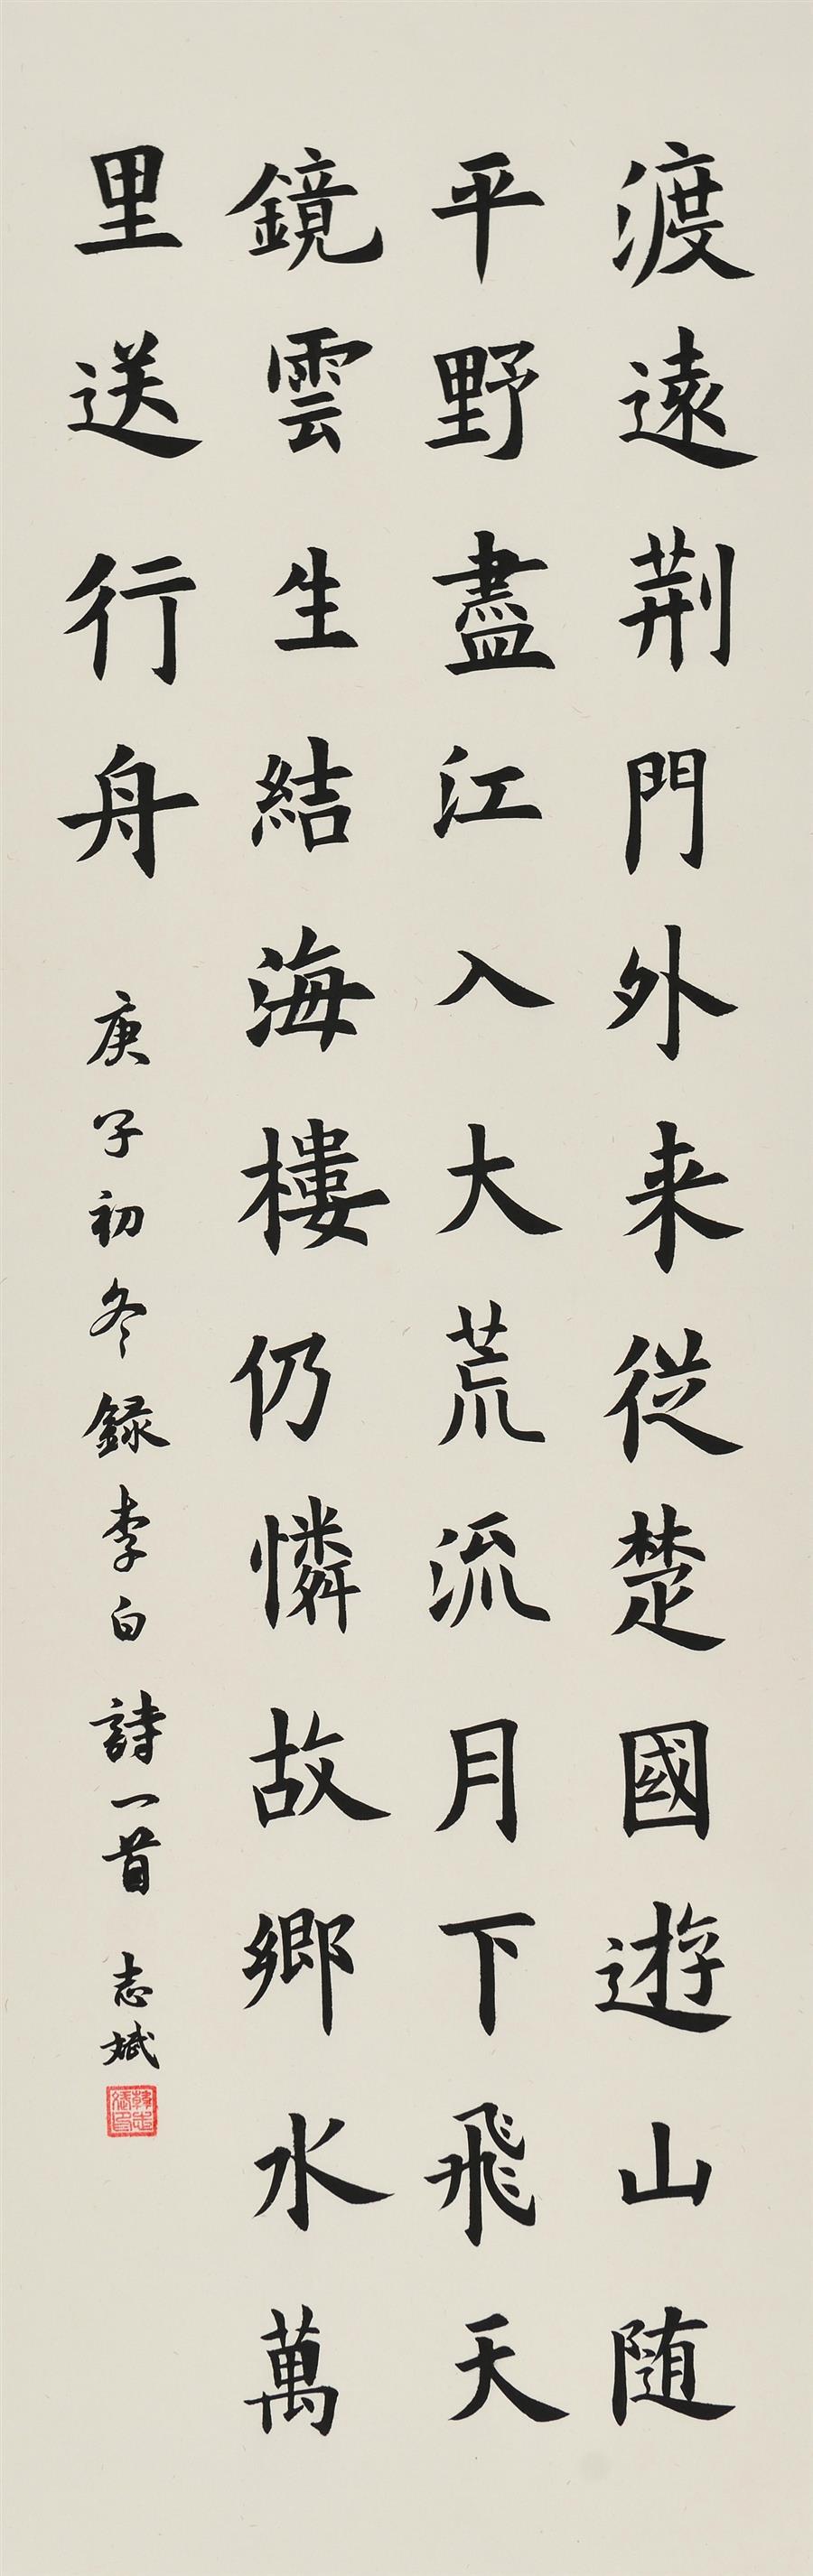 渡遠荆門外来從楚國遊山随
平野盡江入大荒流月下飛天
鏡雲生結海樓仍憐故鄉水萬
里送行舟 庚子初冬録李白詩一首 志斌